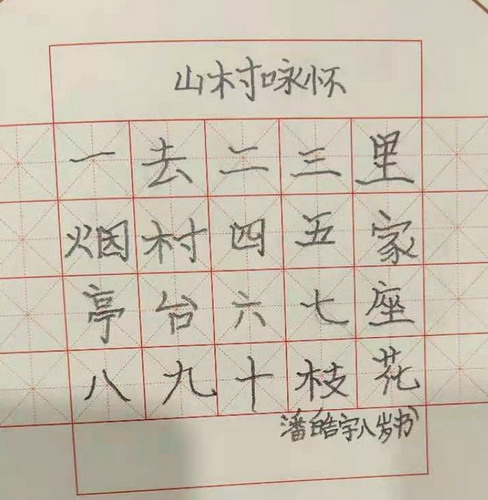 山村咏怀
一去二三里
烟村四五家
亭台六七座
八九十枝花
潘皓字八岁书